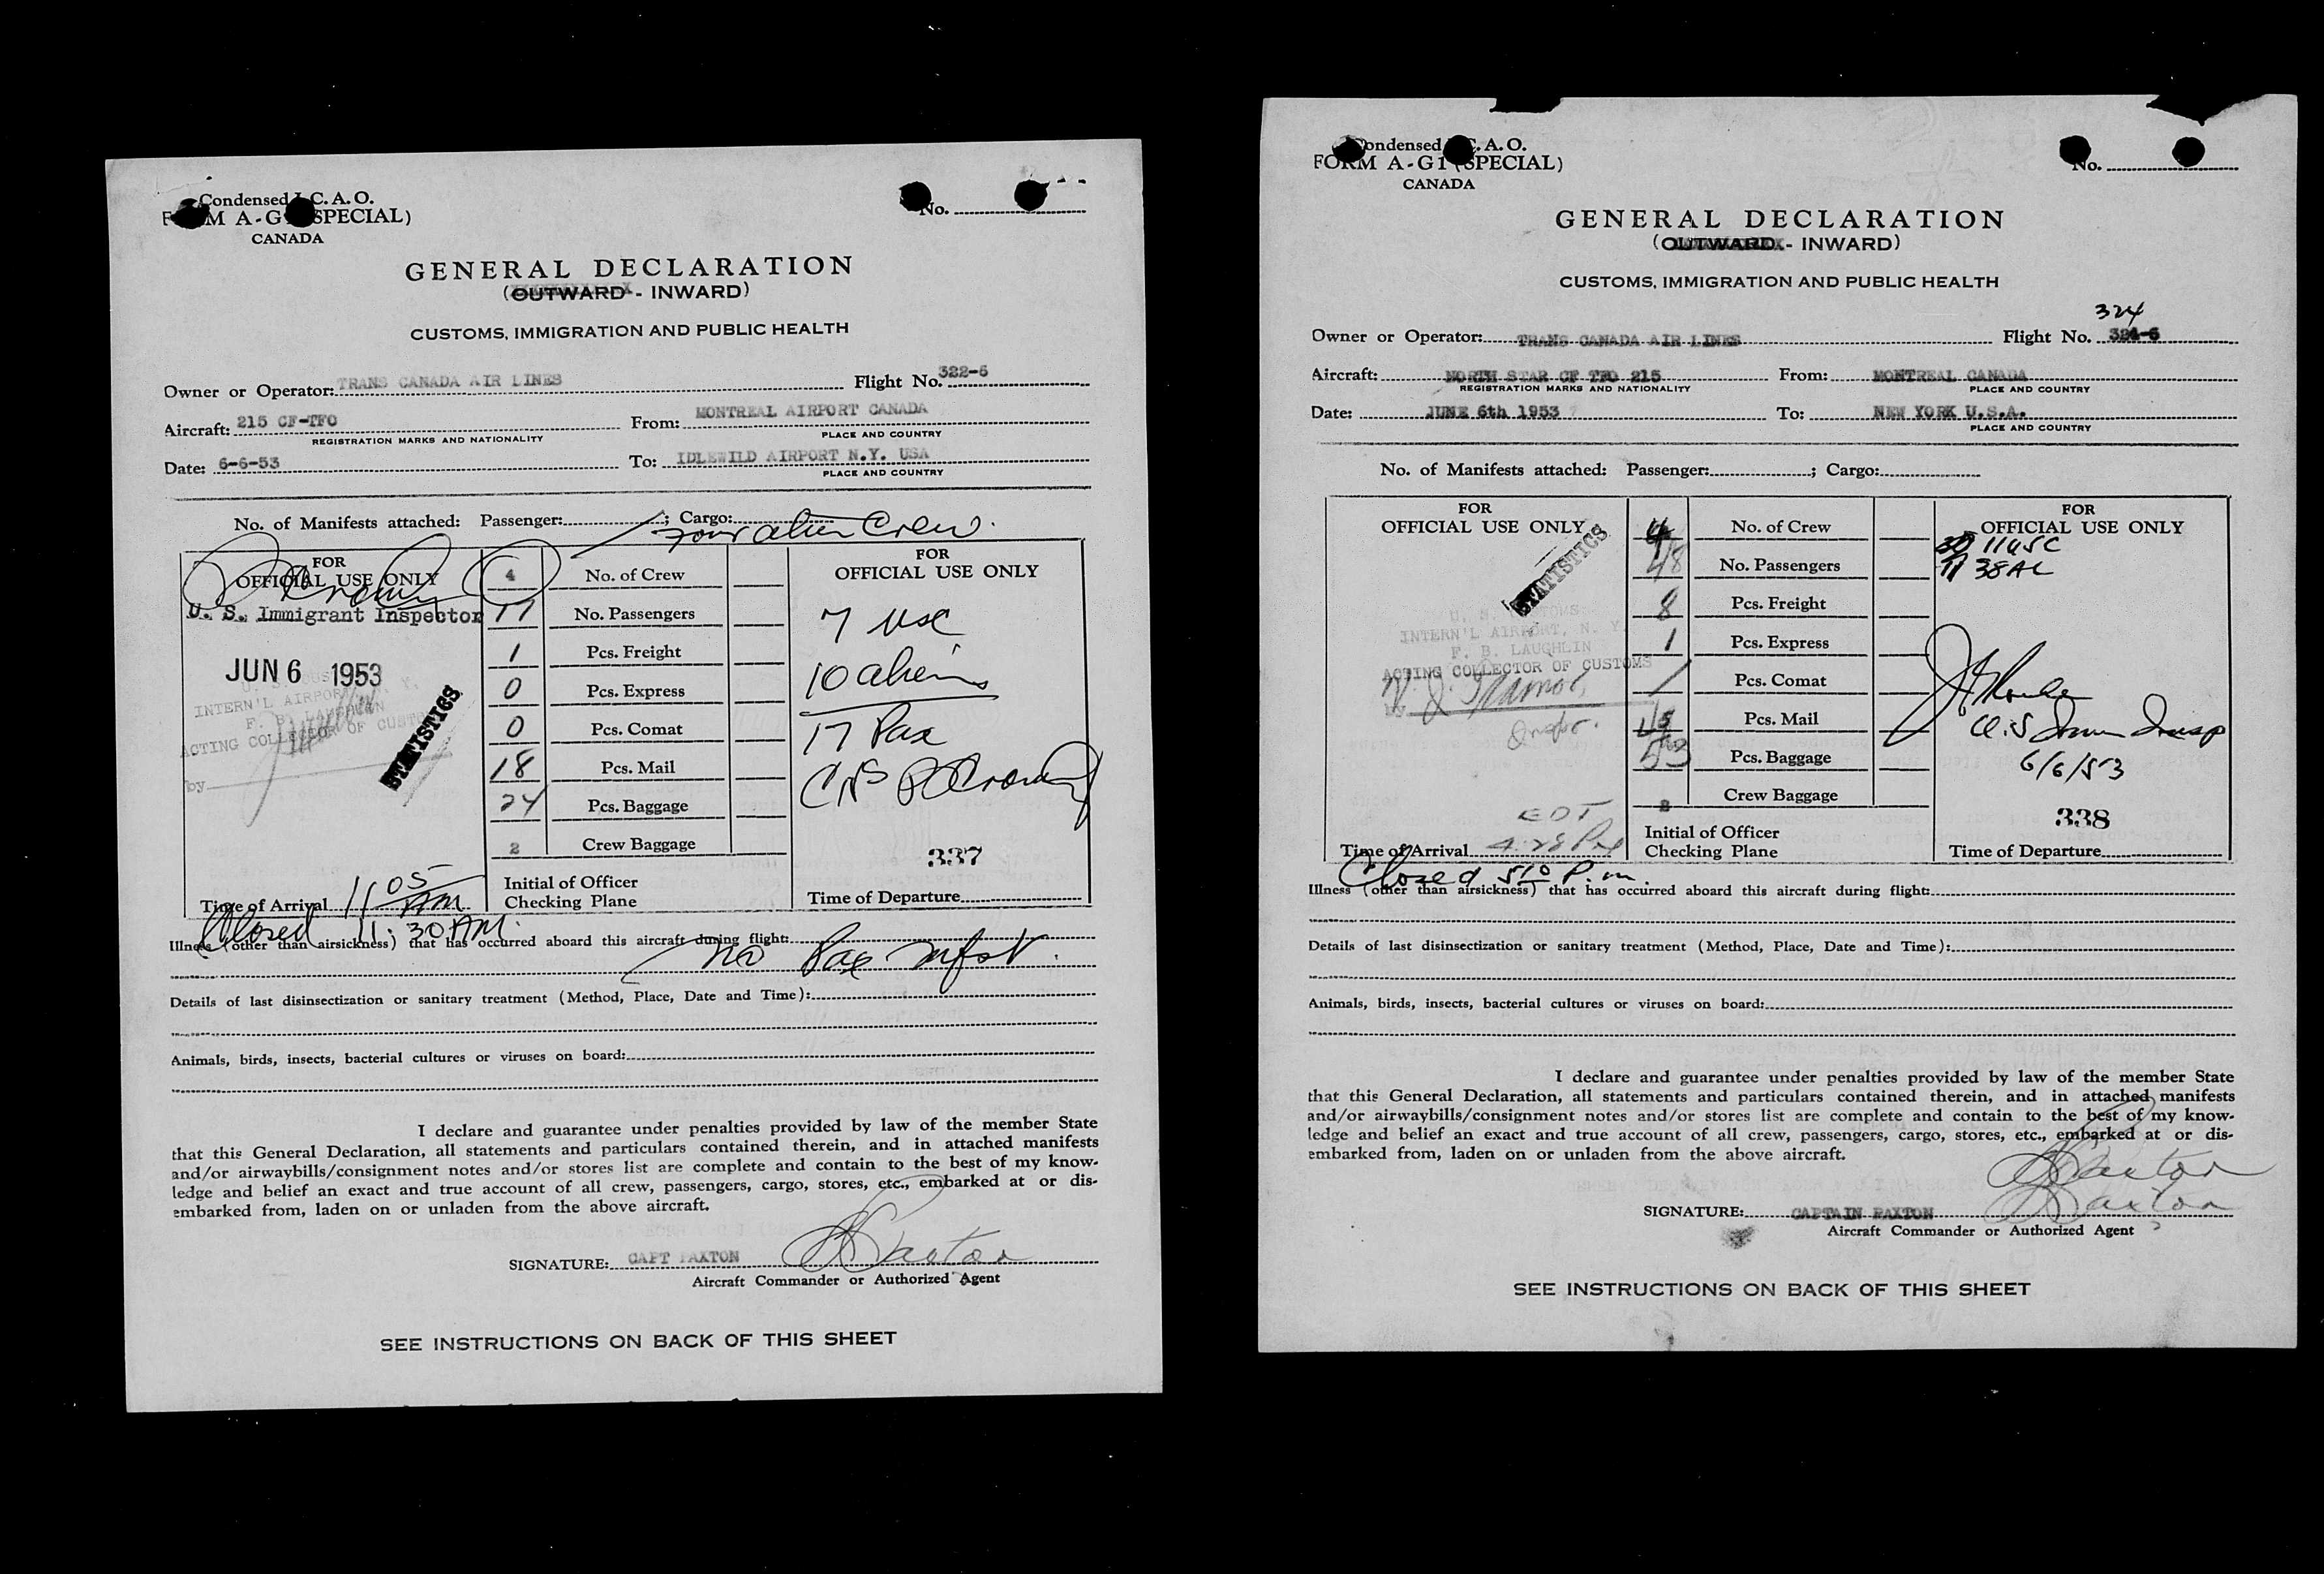 Condensed I.C.A.O.
FORM A-G1 (SPECIAL)
CANADA
No.
GENERAL DECLARATION
(OUTWARD - INWARD)
CUSTOMS, IMMIGRATION AND PUBLIC HEALTH
Owner or Operator: TRANS CANADA AIR LINES Flight No. 322-6
Aircraft: 215 CF-TFO From: MONTREAL AIRPORT CANADA
REGISTRATION MARKS AND NATIONALITY PLACE AND COUNTRY
Date: 6-6-53 To: IDLEWILD AIRPORT N.Y. USA
PLACE AND COUNTRY
No. of Manifests attached: Passenger: ; Cargo:
four alien Crew.
FOR
OFFICIAL USE ONLY
U. S. Immigrant Inspector
JUN 6 1953
U. S. CUSTOMS
INTERN'L AIRPORT, N. Y.
F. B. LAUGHLIN
ACTING COLLECTOR OF CUSTOMS
by
STATISTICS
Time of Arrival 11 05 AM
Closed 11:30 AM.
4 No. of Crew
17 No. Passengers
1 Pcs. Freight
0 Pcs. Express
0 Pcs. Comat
18 Pcs. Mail
24 Pcs. Baggage
2 Crew Baggage
Initial of Officer
Checking Plane
FOR
OFFICIAL USE ONLY
7 USC
10 aliens
17 Pax
337
Time of Departure
Illness (other than airsickness) that has occurred aboard this aircraft during flight:
no Pax mfst.
Details of last disinsectization or sanitary treatment (Method, Place, Date and Time):
Animals, birds, insects, bacterial cultures or viruses on board:
I declare and guarantee under penalties provided by law of the member State
that this General Declaration, all statements and particulars contained therein, and in attached manifests
and/or airwaybills/consignment notes and/or stores list are complete and contain to the best of my know-
ledge and belief an exact and true account of all crew, passengers, cargo, stores, etc., embarked at or dis-
embarked from, laden on or unladen from the above aircraft.
SIGNATURE: CAPT PAXTON Paxton
Aircraft Commander or Authorized Agent
SEE INSTRUCTIONS ON BACK OF THIS SHEET
Condensed I.C.A.O.
FORM A-G1 (SPECIAL)
CANADA
No.
GENERAL DECLARATION
(OUTWARD - INWARD)
CUSTOMS, IMMIGRATION AND PUBLIC HEALTH
324
Owner or Operator: TRANS CANADA AIR LINES Flight No. 324-6
Aircraft: NORTH STAR CF TFO 215 From: MONTREAL CANADA
REGISTRATION MARKS AND NATIONALITY PLACE AND COUNTRY
Date: JUNE 6th 1953 To: NEW YORK U.S.A.
PLACE AND COUNTRY
No. of Manifests attached: Passenger: ; Cargo:
FOR
OFFICIAL USE ONLY
STATISTICS
U. S. CUSTOMS
INTERN'L AIRPORT, N. Y.
F. B. LAUGHLIN
ACTING COLLECTOR OF CUSTOMS
by
EDT
Time of Arrival 4:28 PM
Closed 5 10 P.m.
4 No. of Crew
48 No. Passengers
8 Pcs. Freight
1 Pcs. Express
1 Pcs. Comat
Pcs. Mail
53 Pcs. Baggage
2 Crew Baggage
Initial of Officer
Checking Plane
FOR
OFFICIAL USE ONLY
11 USC
38 AL
U.S Imm Insp
6/6/53
338
Time of Departure
Illness (other than airsickness) that has occurred aboard this aircraft during flight:
Details of last disinsectization or sanitary treatment (Method, Place, Date and Time):
Animals, birds, insects, bacterial cultures or viruses on board:
I declare and guarantee under penalties provided by law of the member State
that this General Declaration, all statements and particulars contained therein, and in attached manifests
and/or airwaybills/consignment notes and/or stores list are complete and contain to the best of my know-
ledge and belief an exact and true account of all crew, passengers, cargo, stores, etc., embarked at or dis-
embarked from, laden on or unladen from the above aircraft.
Paxton
SIGNATURE: CAPTAIN PAXTON Paxton
Aircraft Commander or Authorized Agent
SEE INSTRUCTIONS ON BACK OF THIS SHEET